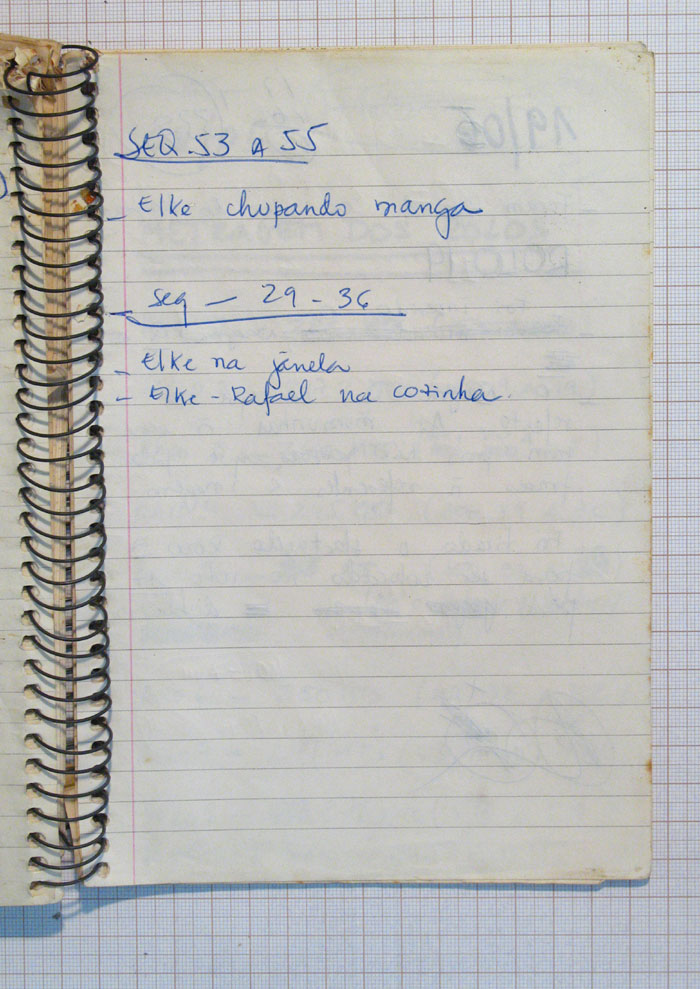 SEQ. 53 A 55
- Elke chupando manga
- seq — 29 - 36
- Elke na janela
- Elke - Rafael na cozinha.